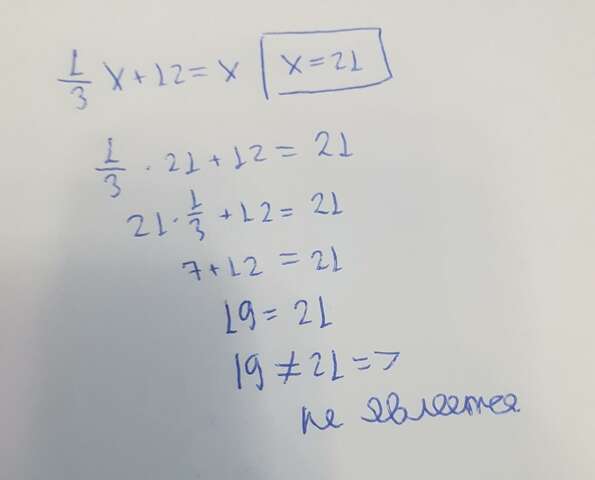 1/3 x + 12 = x x = 21
1/3 · 21 + 12 = 21
21 · 1/3 + 12 = 21
7 + 12 = 21
19 = 21
19 ≠ 21 =>
не является